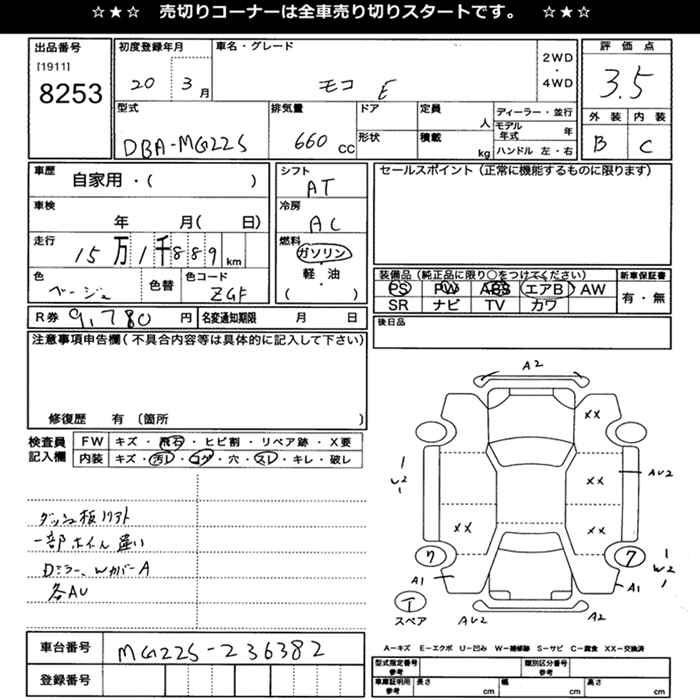 ☆★☆ 売切りコーナーは全車売り切りスタートです。 ☆★☆
出品番号 初度登録年月 車名・グレード 2WD・4WD 評価点
[1911]
8253 20 3月 モコ E 3.5
型式 排気量 ドア 定員 人 ディーラー・並行 外装 内装
モデル年式 年
DBA-MG22S 660 CC 形状 積載 kg ハンドル 左・右 B C
車歴 自家用・( ) シフト AT セールスポイント(正常に機能するものに限ります)
車検 年 月( 日) 冷房 AC
走行 15万1千889km 燃料 ガソリン
軽・油
( )
色 ベージュ 色替 色コード ZGF
装備品(純正品に限り○をつけてください) 新車保証書
PS PW ABS エアB AW 有・無
SR ナビ TV カワ
R券 9,780円 名変通知期限 月 日 後日品
注意事項申告欄(不具合内容等は具体的に記入して下さい)
修復歴 有〔箇所 〕
検査員記入欄 FW キズ・飛石・ヒビ割・リペア跡・X要
内装 キズ・汚レ・コゲ・穴・スレ・キレ・破レ
ダッシュ板リフト
一部ホイル違い
Dミラー、WカバーA
各AU
A2
XX
XX AU2
1
W2
1
XX XX
ワ 7 1
W2
1
A1 A1
T
スペア AU2 A2
車台番号 MG22S-236382
登録番号
A-キズ E-エクボ U-凹み W-補修跡 S-サビ C-腐食 XX-交換済
型式指定番号 参考 類別区分番号 参考
車庫証明用 参考 長さ cm 幅 cm 高さ cm